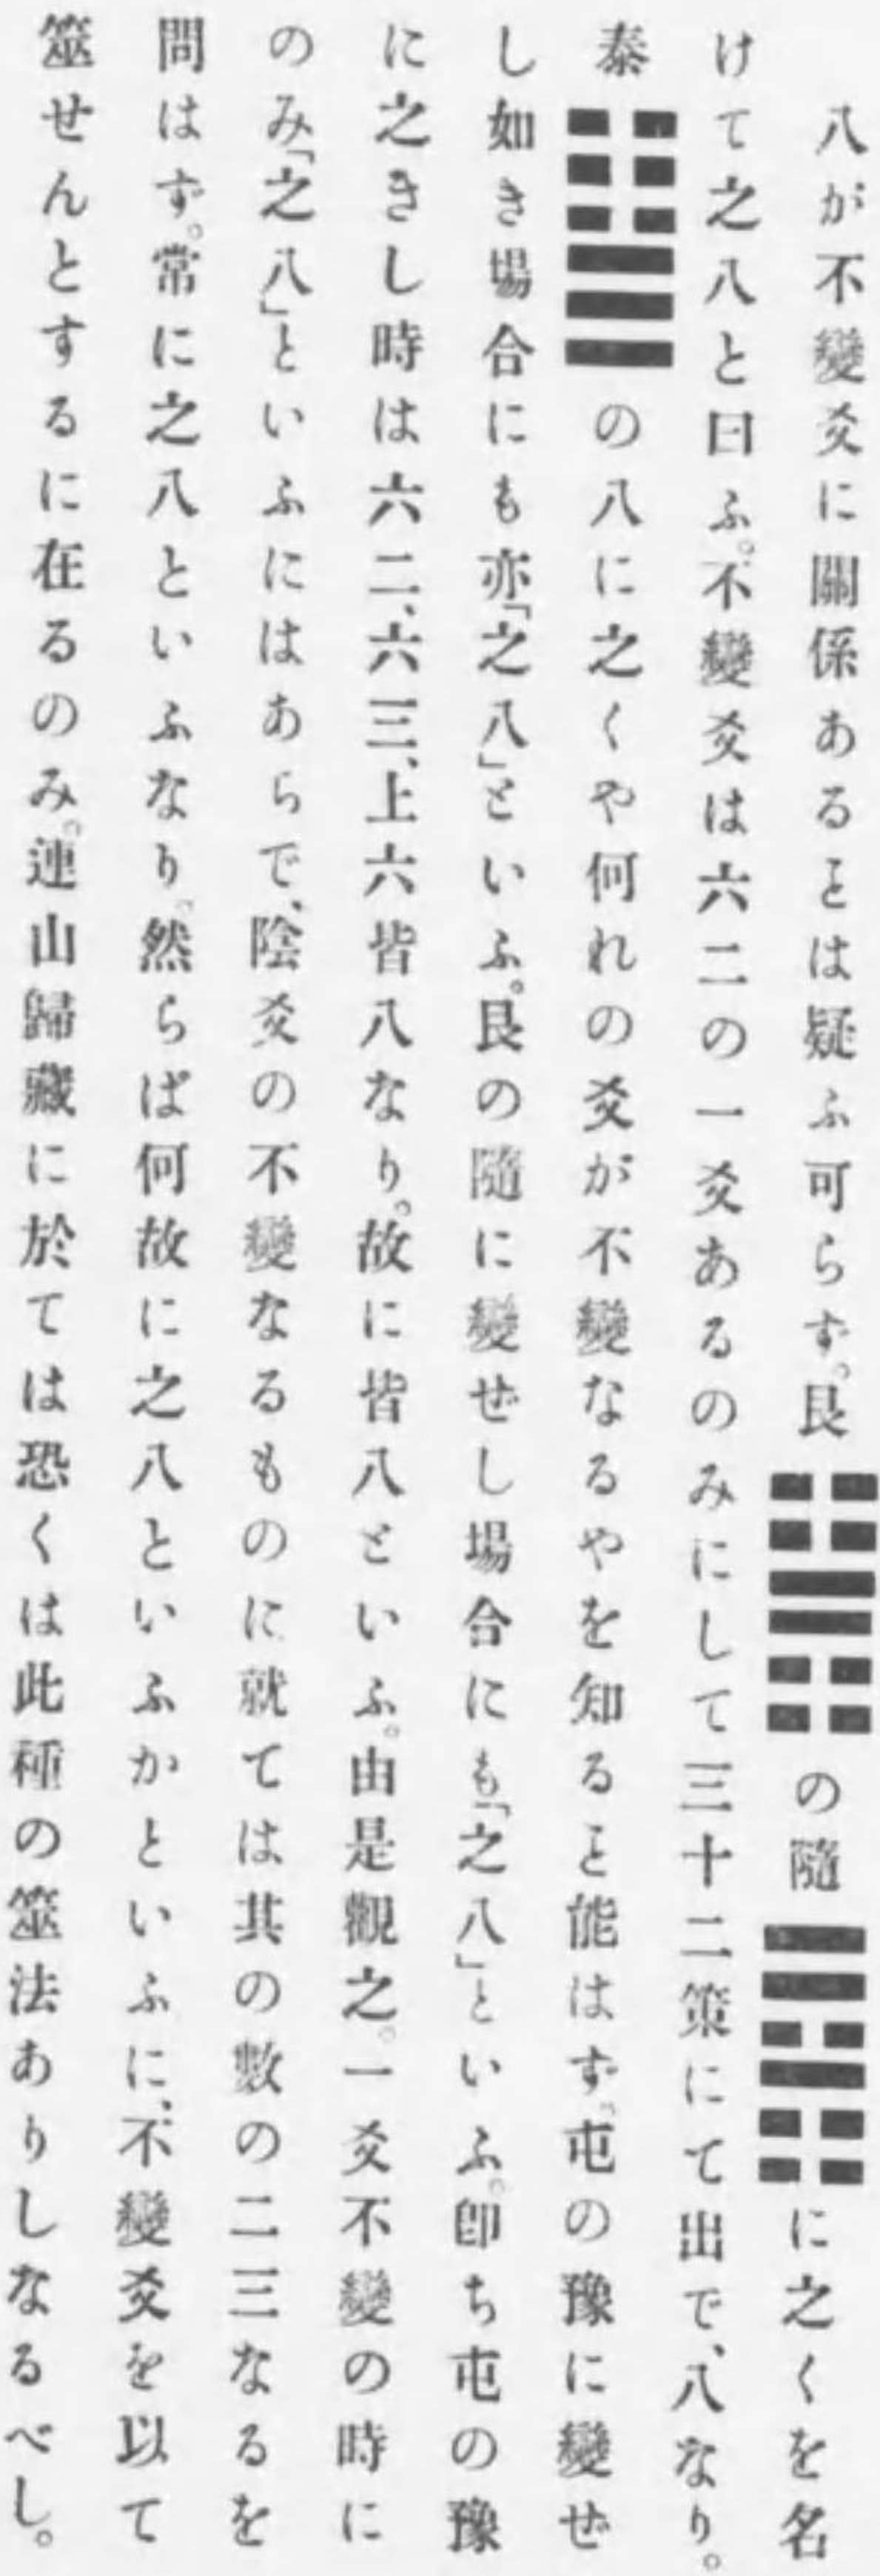 八が不變爻に關係あるとは疑ふ可らず。艮の隨に之くを名
けて之八と曰ふ。不變爻は六二の一爻あるのみにして三十二策にて出で、八なり。
泰の八に之くや何れの爻が不變なるやを知ると能はず。屯の豫に變ぜ
し如き場合にも亦「之八」といふ。艮の隨に變ぜし場合にも「之八」といふ。卽ち屯の豫
に之きし時は六二、六三、上六皆八なり。故に皆八といふ。由是觀之。一爻不變の時に
のみ「之八」といふにはあらで、陰爻の不變なるものに就ては其の數の二三なるを
問はず。常に之八といふなり。然らば何故に之八といふかといふに、不變爻を以て
筮せんとするに在るのみ。連山歸藏に於ては恐くは此種の筮法ありしなるべし。